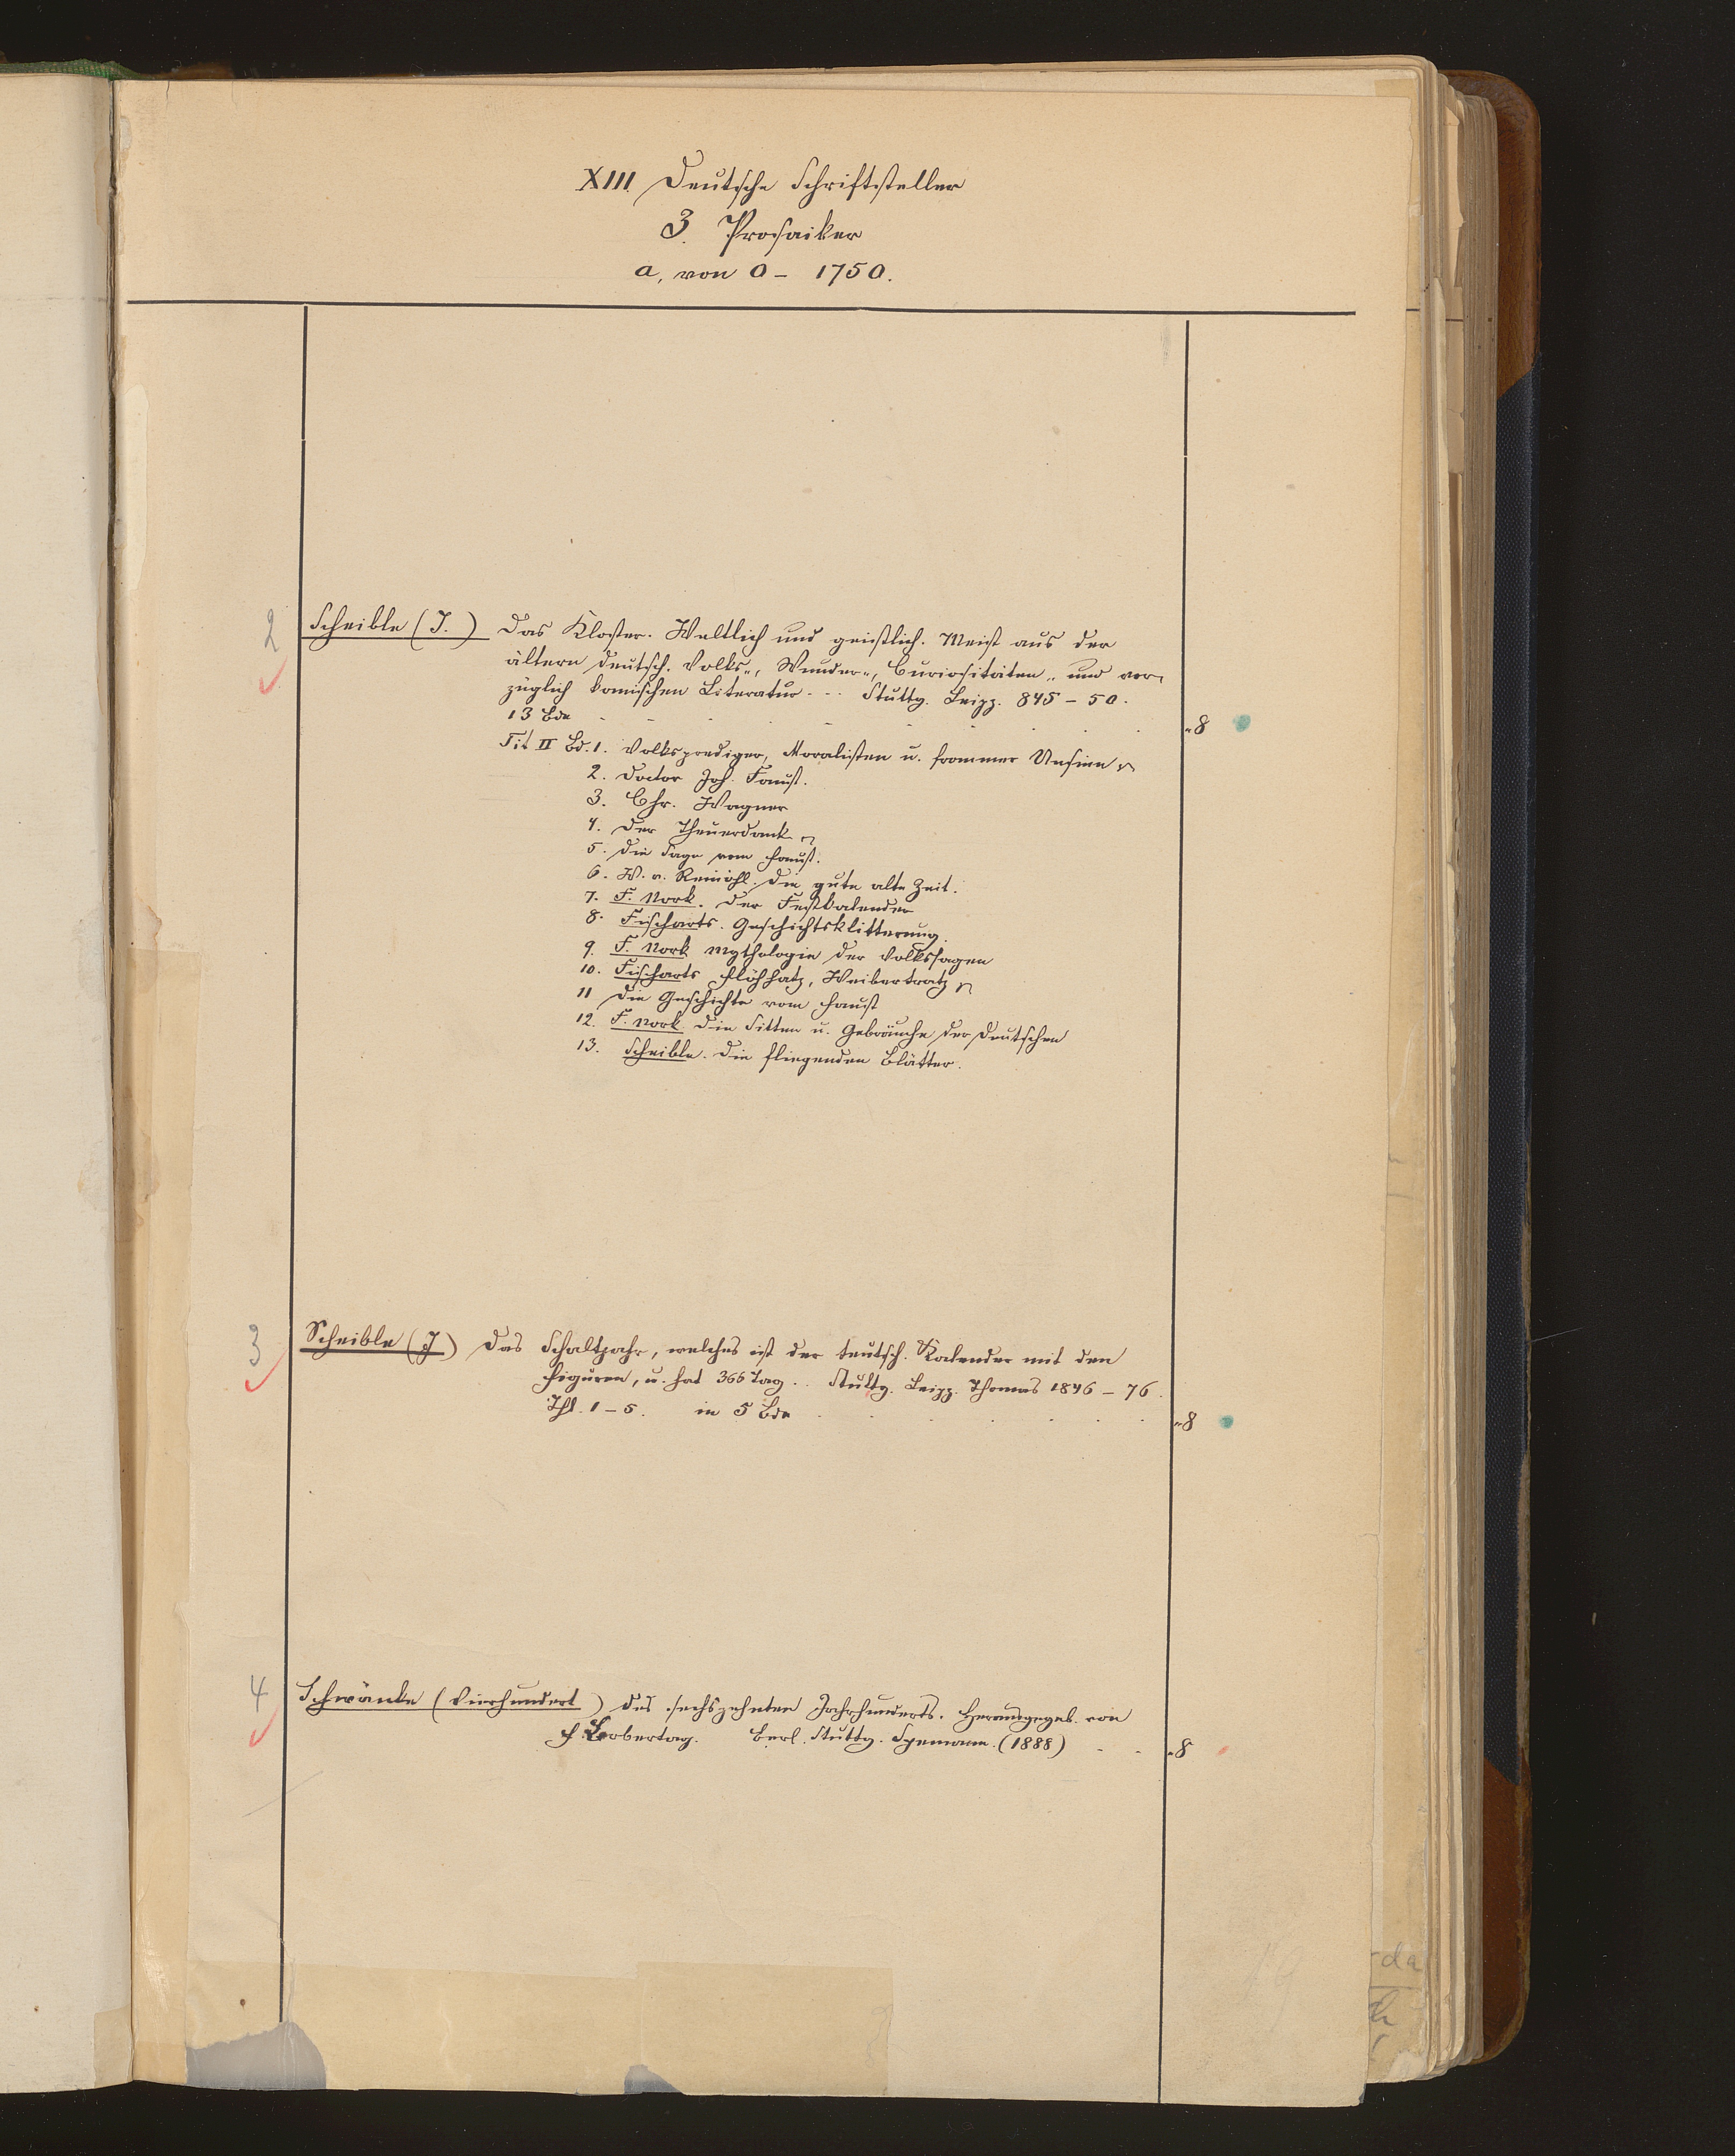 XIII Deutsche Schriftsteller
3. Prosaiker
a, von 0 – 1750.
2 Scheible (J.) Das Kloster. Weltlich und geistlich. Meist aus der
ältern deutsch. Volks-, Wunder-, Curiositäten- und vor-
züglich komischen Literatur ... Stuttg. Leipz. 845 – 50.
13 Bde - - - - - - - - - - 8
Tit II Bd. 1. Volksprediger, Moralisten u. frommer Unsinn
2. Doctor Joh. Faust.
3. Chr. Wagner
4. Der Theuerdank
5. Die Sage vom Faust.
6. W. v. Reinöhl. Die gute alte Zeit.
7. F. Nork. Der Festkalender
8. Fischarts. Geschichtsklitterung.
9. F. Nork Mythologie der Volkssagen
10. Fischarts Flöhhatz, Weibertratz
11 Die Geschichte vom Faust
12. F. Nork. Die Sitten u. Gebräuche der Deutschen
13. Scheible. Die fliegenden Blätter.
3 Scheible (J) Das Schaltjahr, welches ist der teutsch. Kalender mit den
Figuren, u. hat 366 Tag .. Stuttg. Leipz. Thomas 1846 – 76.
Thl. 1 – 5. in 5 Bde . . . . . . . 8
4 Schwänke (Vierhundert) des sechszehnten Jahrhunderts. Herausgegeb. von
F. Bobertag. Berl. Stuttg. Spemann. (1888) - - 8